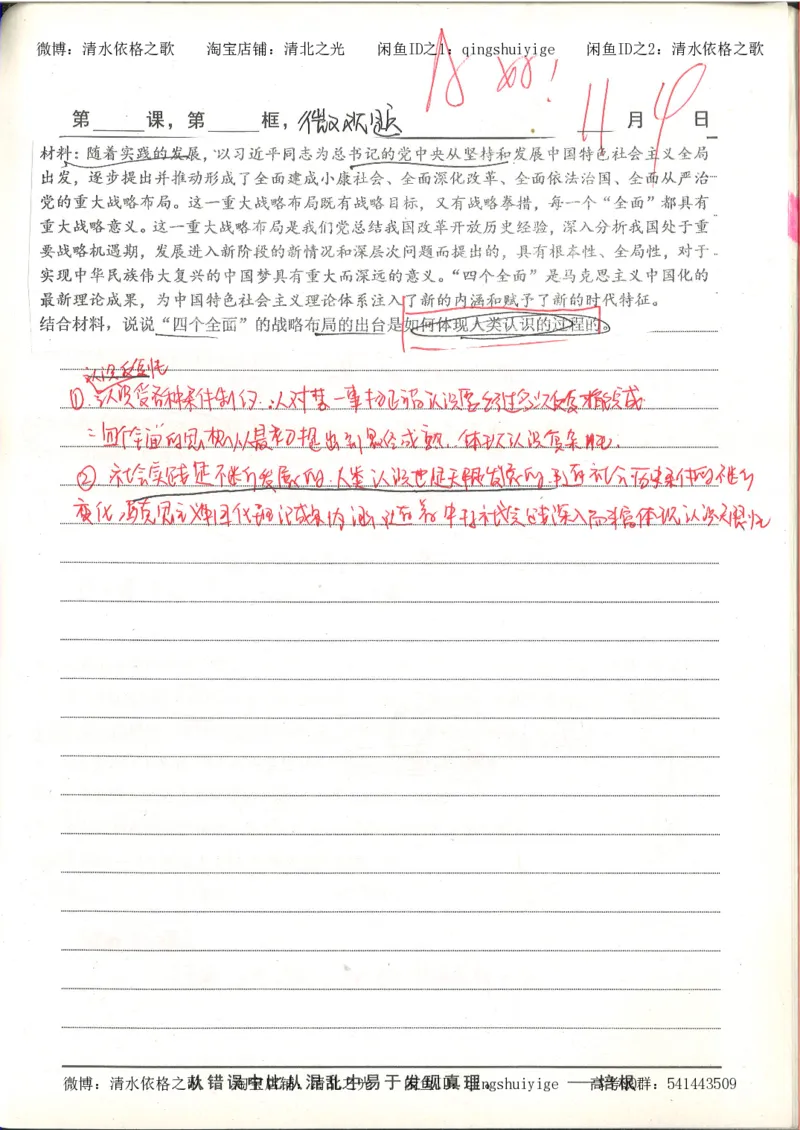 微博：清水依格之歌 淘宝店铺：清北之光 闲鱼ID之1：qingshuiyige 闲鱼ID之2：清水依格之歌
好！
第 课，第 框，微观题 11月9日
材料：随着实践的发展，以习近平同志为总书记的党中央从坚持和发展中国特色社会主义全局
出发，逐步提出并推动形成了全面建成小康社会、全面深化改革、全面依法治国、全面从严治
党的重大战略布局。这一重大战略布局既有战略目标，又有战略举措，每一个“全面”都具有
重大战略意义。这一重大战略布局是我们党总结我国改革开放历史经验，深入分析我国处于重
要战略机遇期，发展进入新阶段的新情况和深层次问题而提出的，具有根本性、全局性，对于
实现中华民族伟大复兴的中国梦具有重大而深远的意义。“四个全面”是马克思主义中国化的
最新理论成果，为中国特色社会主义理论体系注入了新的内涵和赋予了新的时代特征。
结合材料，说说“四个全面”的战略布局的出台是如何体现人类认识的过程的。
认识反复性
① 认识受各种条件制约，∴人对某一事物正确认识要经过多次反复才能完成
四个全面的思想从最初提出到最终成熟，体现认识复杂性。
② 社会实践是不断发展的，人类认识也是无限发展的，随着社会历史条件的不断
变化，马克思主义中国化理论成果内涵也在着中社会实践深入而丰富体现认识无限性
微博：清水依格之歌 淘宝店铺：清北之光 闲鱼ID：qingshuiyige 高考QQ群：541443509
从错误中比从混乱中易于发现真理。 ——培根